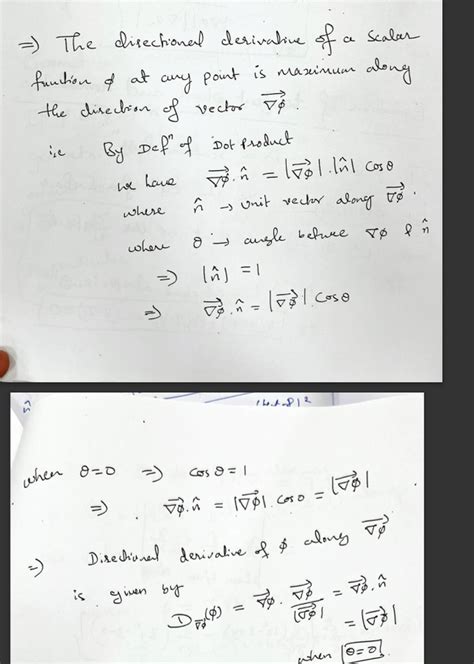 ⇒) The directional derivative of a scalar
function ϕ at any point is maximum along
the direction of vector ∇ϕ⃗ .
i.e By Defⁿ of Dot Product
we have ∇ϕ⃗ . n̂ = |∇ϕ⃗| . |n̂| Cosθ
where n̂ → Unit vector along ∇ϕ⃗ .
where θ → angle betwee ∇ϕ & n̂
⇒) |n̂| = 1
⇒) ∇ϕ⃗ . n̂ = |∇ϕ⃗| . Cosθ
n̂
when θ=0 ⇒) cosθ = 1
⇒) ∇ϕ⃗ . n̂ = |∇ϕ⃗| . Cos0 = |∇ϕ⃗|
⇒) Directional derivative of ϕ along ∇ϕ⃗
is given by
D∇ϕ⃗ (ϕ) = ∇ϕ⃗ . ∇ϕ⃗ / |∇ϕ⃗| = ∇ϕ⃗ . n̂
= |∇ϕ⃗|
when θ=0